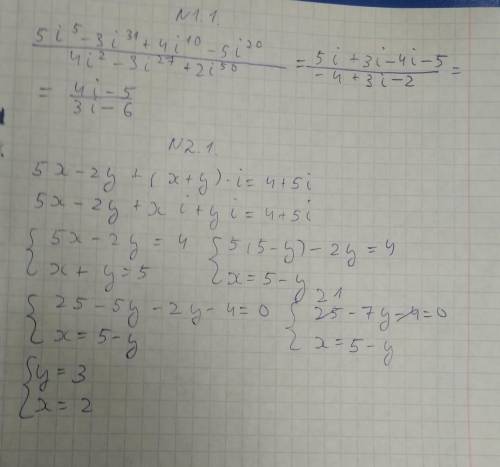 N1.1.
(5i^5 - 3i^31 + 4i^10 - 5i^20)/(4i^2 - 3i^27 + 2i^50) = (5i + 3i - 4i - 5)/(-4 + 3i - 2) =
= (4i - 5)/(3i - 6)
N2.1.
5x - 2y + (x + y) · i = 4 + 5i
5x - 2y + x i + y i = 4 + 5i
{ 5x - 2y = 4 { 5(5 - y) - 2y = 4
{ x + y = 5 { x = 5 - y
21
{ 25 - 5y - 2y - 4 = 0 { 25 - 7y - 4 = 0
{ x = 5 - y { x = 5 - y
{ y = 3
{ x = 2